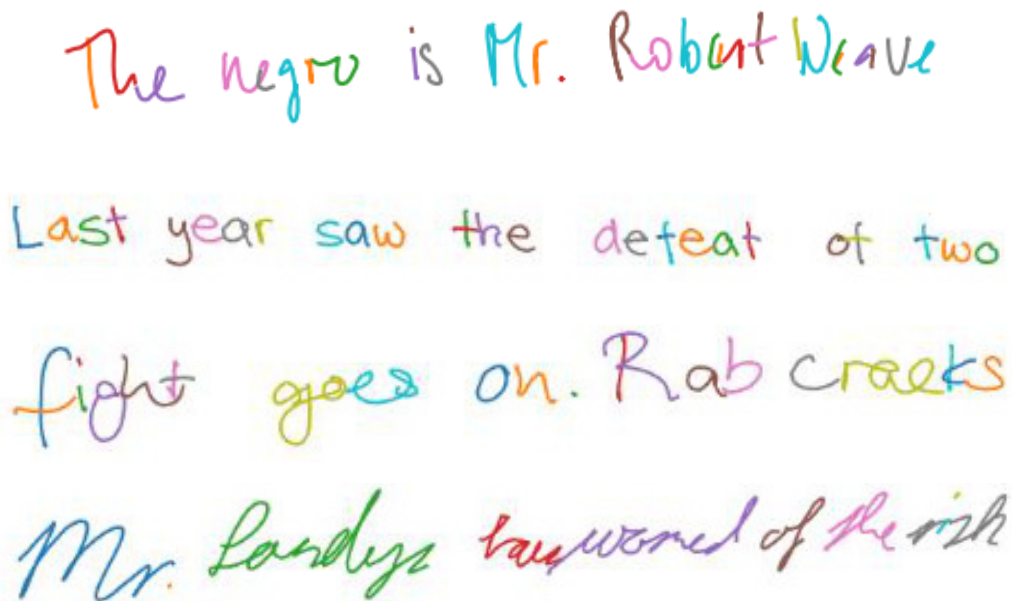 The negro is Mr. Robert Weave
Last year saw the defeat of two
fight goes on. Rab craeks
Mr. Sandys has warned of the risk